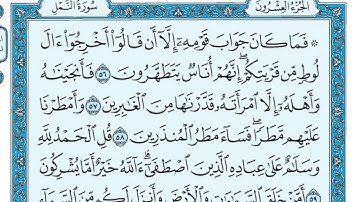 الجزء العشرون
سورة النمل
۞ فَمَا كَانَ جَوَابَ قَوْمِهِۦٓ إِلَّآ أَن قَالُوٓا۟ أَخْرِجُوٓا۟ ءَالَ
لُوطٍ مِّن قَرْيَتِكُمْ ۖ إِنَّهُمْ أُنَاسٌ يَتَطَهَّرُونَ ٥٦ فَأَنجَيْنَٰهُ
وَأَهْلَهُۥٓ إِلَّا ٱمْرَأَتَهُۥ قَدَّرْنَٰهَا مِنَ ٱلْغَٰبِرِينَ ٥٧ وَأَمْطَرْنَا
عَلَيْهِم مَّطَرًا ۖ فَسَآءَ مَطَرُ ٱلْمُنذَرِينَ ٥٨ قُلِ ٱلْحَمْدُ لِلَّهِ
وَسَلَٰمٌ عَلَىٰ عِبَادِهِ ٱلَّذِينَ ٱصْطَفَىٰٓ ۗ ءَآللَّهُ خَيْرٌ أَمَّا يُشْرِكُونَ ٥٩
أَمَّنْ خَلَقَ ٱلسَّمَٰوَٰتِ وَٱلْأَرْضَ وَأَنزَلَ لَكُم مِّنَ ٱلسَّمَآءِ